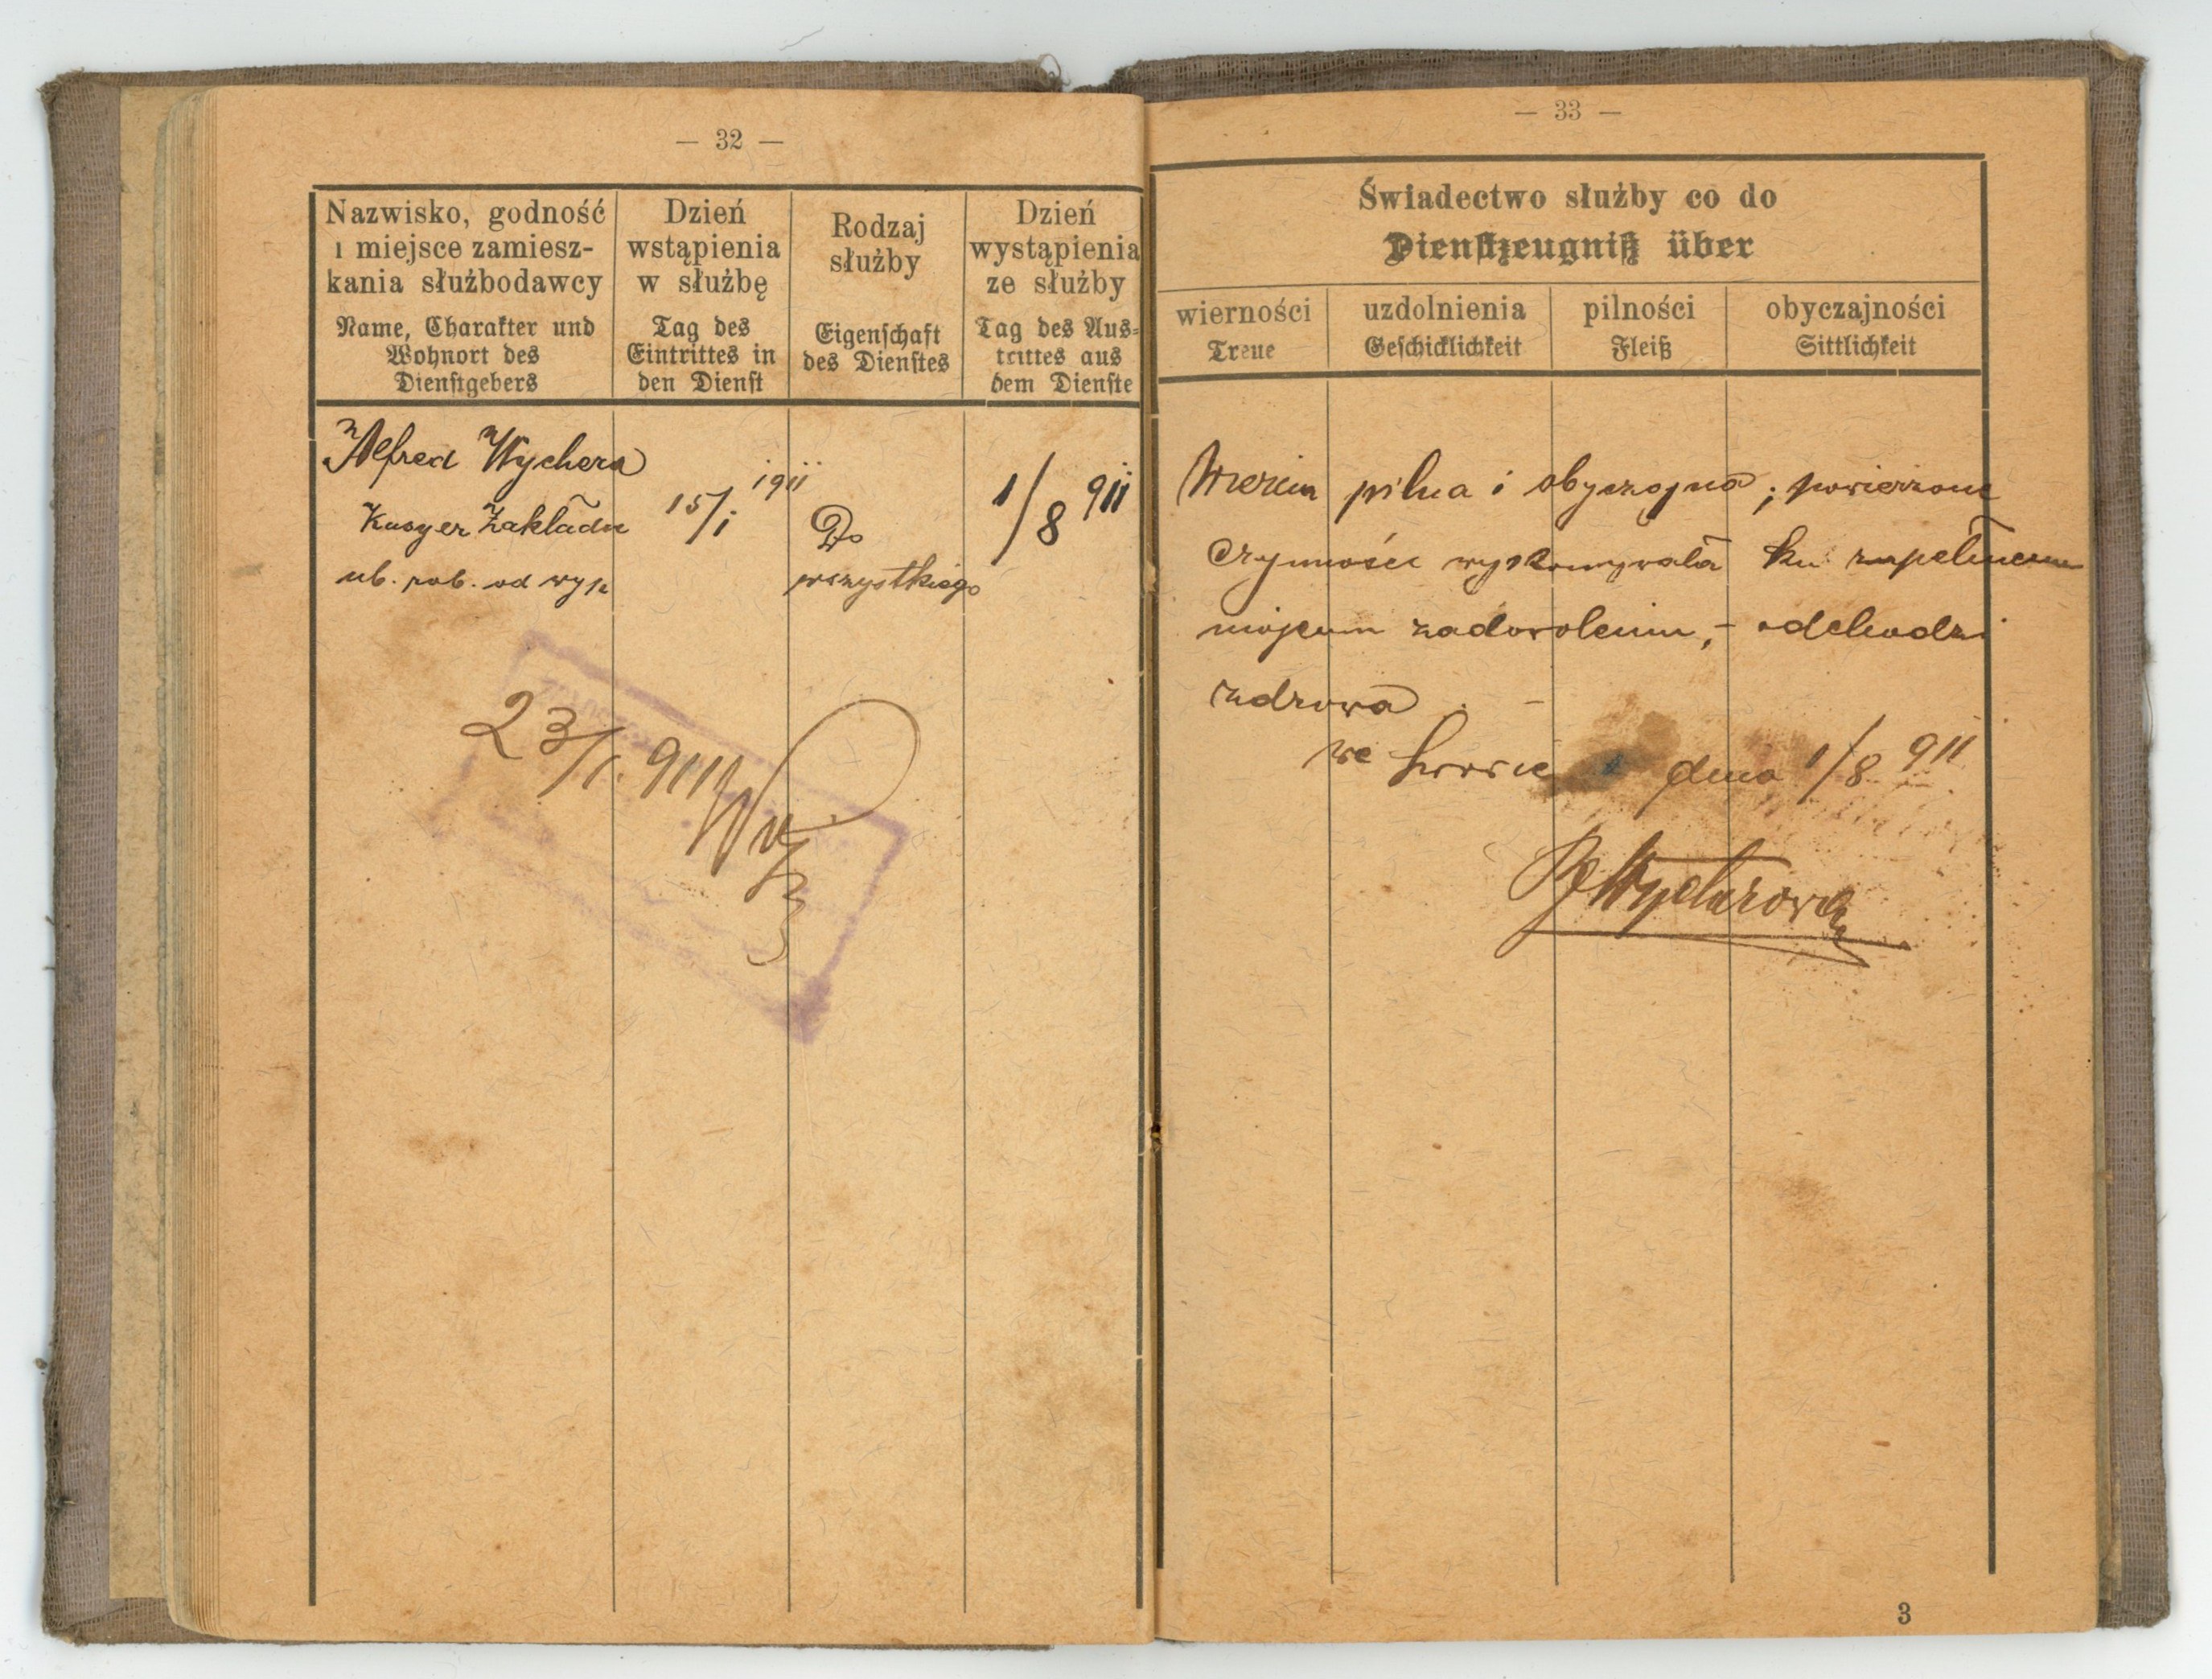 — 32 —
Nazwisko, godność
i miejsce zamiesz-
kania służbodawcy
Name, Charakter und
Wohnort des
Dienstgebers
Dzień
wstąpienia
w służbę
Tag des
Eintrittes in
den Dienst
Rodzaj
służby
Eigenschaft
des Dienstes
Dzień
wystąpienia
ze służby
Tag des Aus-
trittes aus
dem Dienste
Alfred Wychera
Kasyer Zakładu
ub. rob. od wyp
15/I 1911
Do
wszystkiego
1/8 911
23/1. 911
— 33 —
Świadectwo służby co do
Dienstzeugniß über
wierności
Treue
uzdolnienia
Geschicklichkeit
pilności
Fleiß
obyczajności
Sittlichkeit
Wierna pilna i obyczajna; powierzone
czynności wykonywała ku zupełnemu
mojemu zadowoleniu, – odchodzi
zdrowa. –
we Lwowie dnia 1/8 911
Wycherowa
3